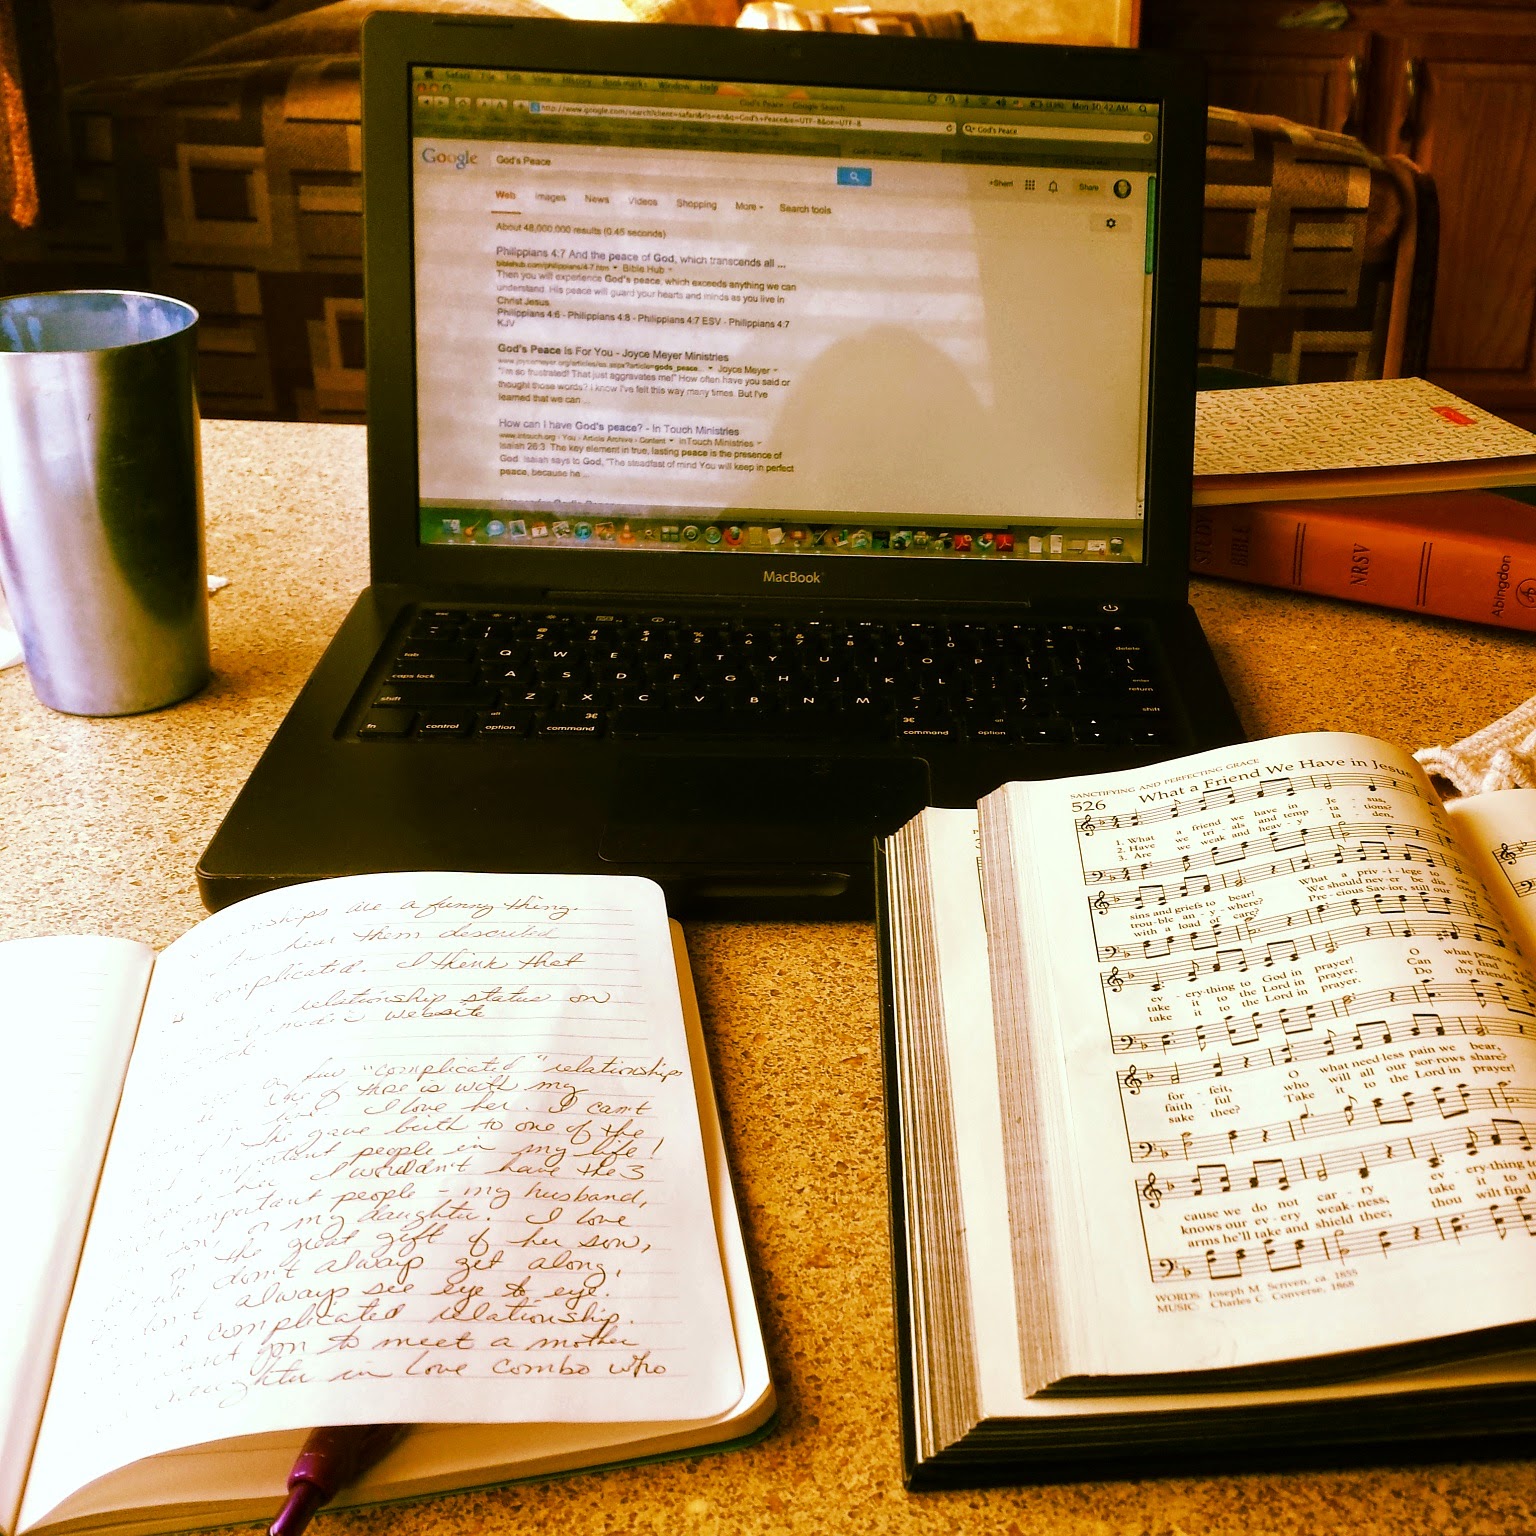 Safari File Edit View History Bookmarks Window Help
Mon 10:42 AM
God's Peace - Google Search
http://www.google.com/search?client=safari&rls=en&q=God's+Peace&ie=UTF-8&oe=UTF-8
God's Peace
Google
God's Peace
+Sherri
Share
Web Images News Videos Shopping More Search tools
About 48,000,000 results (0.45 seconds)
Philippians 4:7 And the peace of God, which transcends all ...
biblehub.com/philippians/4-7.htm Bible Hub
Then you will experience God's peace, which exceeds anything we can
understand. His peace will guard your hearts and minds as you live in
Christ Jesus
Philippians 4:6 - Philippians 4:8 - Philippians 4:7 ESV - Philippians 4:7
KJV
God's Peace Is For You - Joyce Meyer Ministries
www.joycemeyer.org/articles/ea.aspx?article=gods_peace... Joyce Meyer
"I'm so frustrated! That just aggravates me!" How often have you said or
thought those words? I know I've felt this way many times. But I've
learned that we can ...
How can I have God's peace? - In Touch Ministries
www.intouch.org › You › Article Archive › Content InTouch Ministries
Isaiah 26:3. The key element in true, lasting peace is the presence of
God. Isaiah says to God, "The steadfast of mind You will keep in perfect
peace, because he ...
MacBook
esc
1 2 3 4 5 6 7 8 9 0
delete
tab Q W E R T Y U I O P
caps lock A S D F G H J K L
enter
return
shift Z X C V B N M
shift
fn control alt option command
command alt option
STUDY
BIBLE
NRSV
Abingdon
SANCTIFYING AND PERFECTING GRACE
526 What a Friend We Have in Jesus
1. What a friend we have in Je - sus,
2. Have we tri - als and temp - ta - tions?
3. Are we weak and heav - y la - den,
sins and griefs to bear! What a priv - i - lege to
trou - ble an - y - where? We should nev - er be dis -
with a load of care? Pre - cious Sav - ior, still our
ev - ery-thing to God in prayer! O what peace we
take it to the Lord in prayer. Can we find
take it to the Lord in prayer. Do thy friends
for - feit, O what need less pain we bear,
faith - ful who will all our sor - rows share?
sake thee? Take it to the Lord in prayer!
cause we do not car - ry ev - ery-thing to
knows our ev - ery weak - ness; take it to
arms he'll take and shield thee; thou wilt find
WORDS: Joseph M. Scriven, ca. 1855
MUSIC: Charles C. Converse, 1868
are a funny thing.
hear them described
complicated. I think that
relationship status on
website
a few "complicated" relationships
One of those is with my
I love her. I can't
She gave birth to one of the
important people in my life!
her I wouldn't have the 3
important people - my husband,
or my daughter. I love
the great gift of her son,
don't always get along,
always see eye to eye.
a complicated relationship.
you to meet a mother
daughter in love combo who